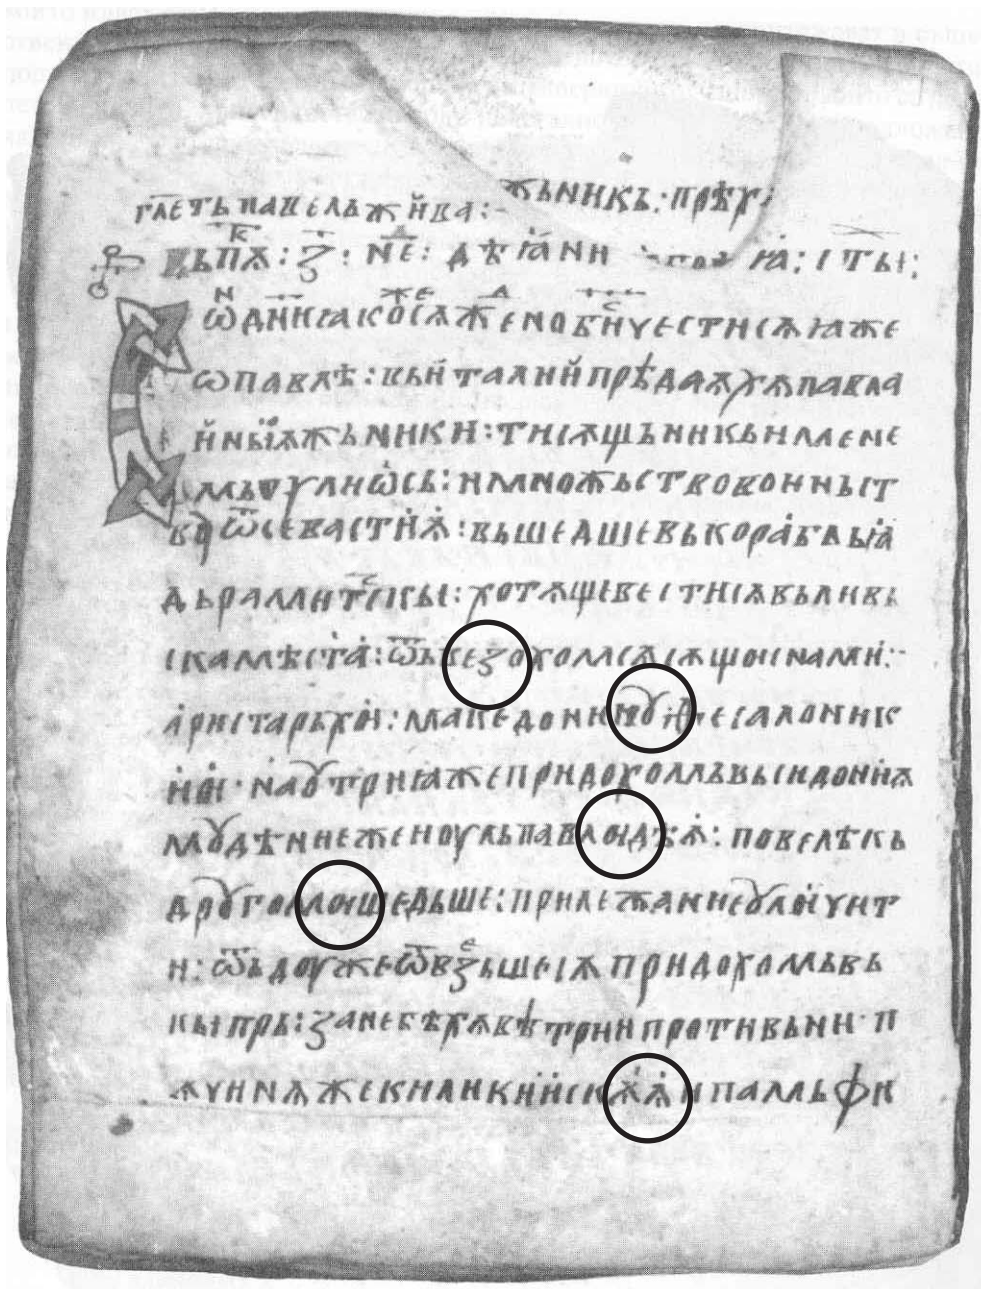 жьникъ: прѣх
гл҃еть павель жива:
въ п҃ѫ: ꙁ҃: не҃: дѣꙗни апо ꙗ: с҃ты:
Ѡ дн҃и ꙗкос ѧже но бы҃ ѵести сѧ ꙗже
ѡ павлѣ: въ италии прѣдааху павла
и ны ѧжьники: тисѫщьникъ именем
мь ѵлиѡсь: и множьство воиньст
во ѿ севастиѧ: въшедше въ корабль ꙗ
дьрамитс҃кы: хотѧще вести сѧ въ ливь
ска мѣста: ѿвеꙁохом сѧ сѫщоу с нами:
аристархоу: македонинꙋ ѳесалоник
иноу. наꙋтриꙗ же придохомъ въ сидониѫ
мꙋдѣние же ноуль павлоу дѣѧ: повелѣ къ
дрꙋгомь шедьше: прилежание ꙋлоуѵит
и: ѿьдоу же ѿвеꙁъше сѧ придохомь въ
кыпрь: ꙁане бѣхѫ вѣтри противьни. п
ѫѵинѫ же киликиискѫѫ и памьфи